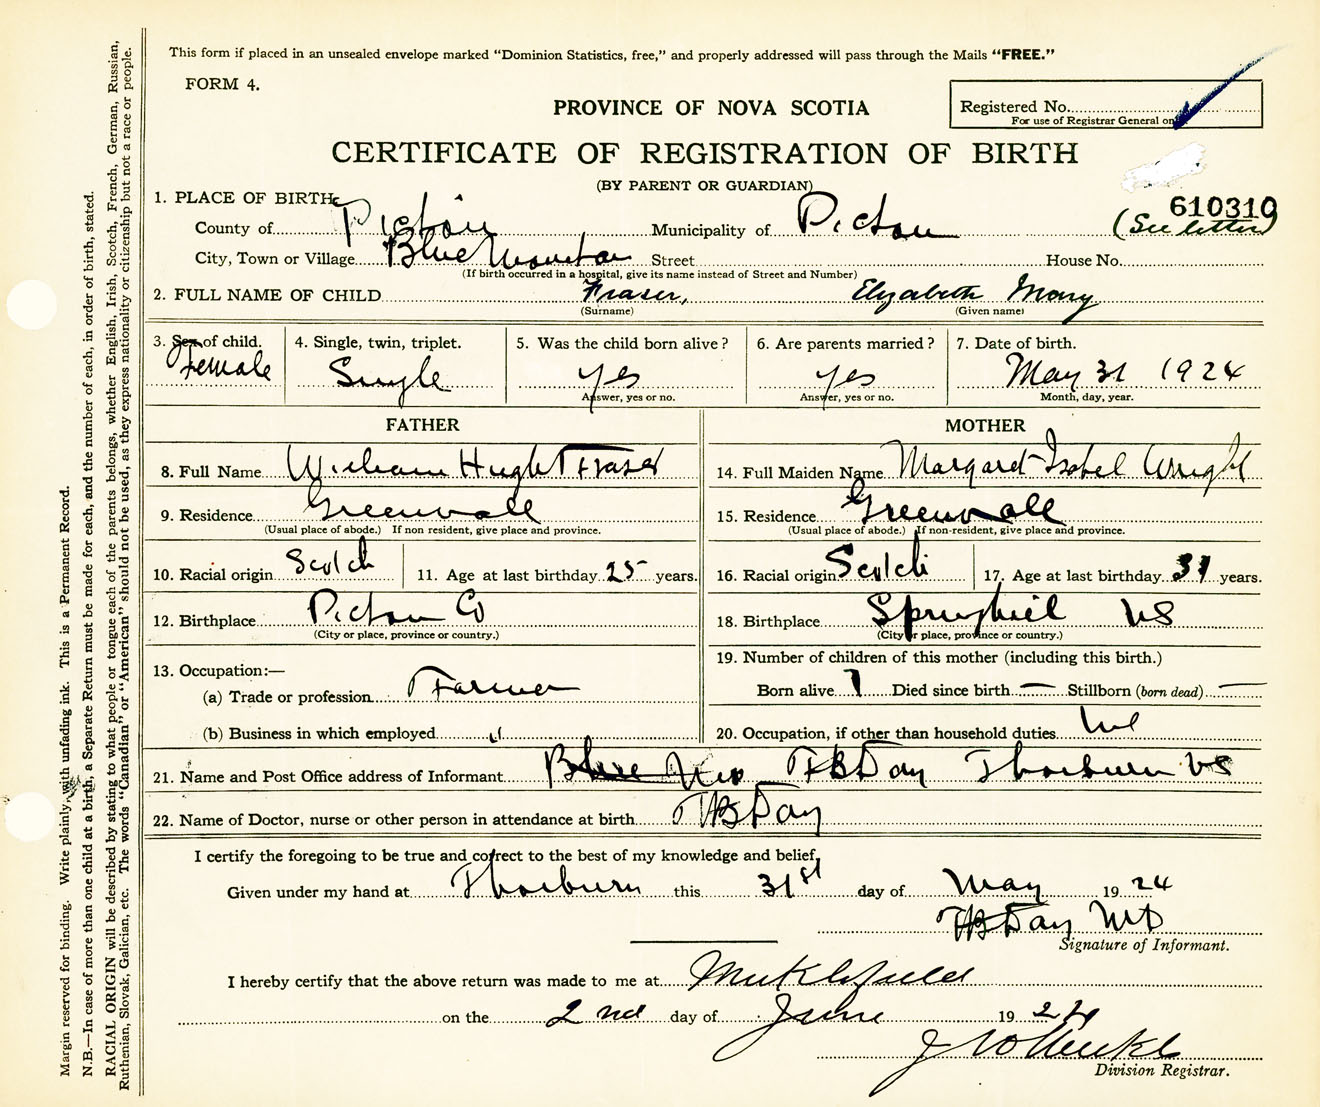 This form if placed in an unsealed envelope marked "Dominion Statistics, free," and properly addressed will pass through the Mails "FREE."
FORM 4.
PROVINCE OF NOVA SCOTIA
Registered No.
For use of Registrar General on
CERTIFICATE OF REGISTRATION OF BIRTH
(BY PARENT OR GUARDIAN)
610310
(See letter)
1. PLACE OF BIRTH
County of Pictou Municipality of Pictou
City, Town or Village Blue Mountain Street House No.
(If birth occurred in a hospital, give its name instead of Street and Number)
2. FULL NAME OF CHILD Fraser, Elizabeth Mary
(Surname) (Given name)
3. Sex of child. 4. Single, twin, triplet. 5. Was the child born alive? 6. Are parents married? 7. Date of birth.
Female Single yes yes May 31 1924
Answer, yes or no. Answer, yes or no. Month, day, year.
FATHER
8. Full Name William Hugh Fraser
9. Residence Greenvale
(Usual place of abode.) If non resident, give place and province.
10. Racial origin Scotch 11. Age at last birthday 25 years.
12. Birthplace Pictou Co
(City or place, province or country.)
13. Occupation:—
(a) Trade or profession Farmer
(b) Business in which employed "
MOTHER
14. Full Maiden Name Margaret Isobel Wright
15. Residence Greenvale
(Usual place of abode.) If non-resident, give place and province.
16. Racial origin Scotch 17. Age at last birthday 31 years.
18. Birthplace Springhill NS
(City or place, province or country.)
19. Number of children of this mother (including this birth.)
Born alive 1 Died since birth — Stillborn (born dead) —
20. Occupation, if other than household duties
21. Name and Post Office address of Informant Blue Mtn Day Thorburn NS
22. Name of Doctor, nurse or other person in attendance at birth Day
I certify the foregoing to be true and correct to the best of my knowledge and belief,
Given under my hand at Thorburn this 31st day of May 19 24
Day MD
Signature of Informant.
I hereby certify that the above return was made to me at
on the 2nd day of June 19 24
Division Registrar.
Margin reserved for binding. Write plainly, with unfading ink. This is a Permanent Record.
N.B.—In case of more than one child at a birth, a Separate Return must be made for each, and the number of each, in order of birth, stated.
RACIAL ORIGIN will be described by stating to what people or tongue each of the parents belongs, whether English, Irish, Scotch, French, German, Russian,
Ruthenian, Slovak, Galician, etc. The words "Canadian" or "American" should not be used, as they express nationality or citizenship but not a race or people.